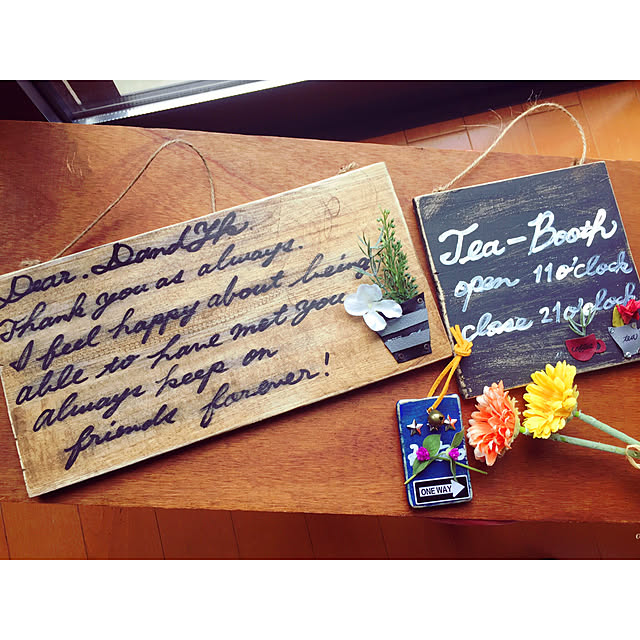 Dear. DandYh.
Thank you as always.
I feel happy about being
able to have met you
always keep on
friends forever!
Tea-Booth
open 11o'clock
close 21o'clock
tea
ONE WAY